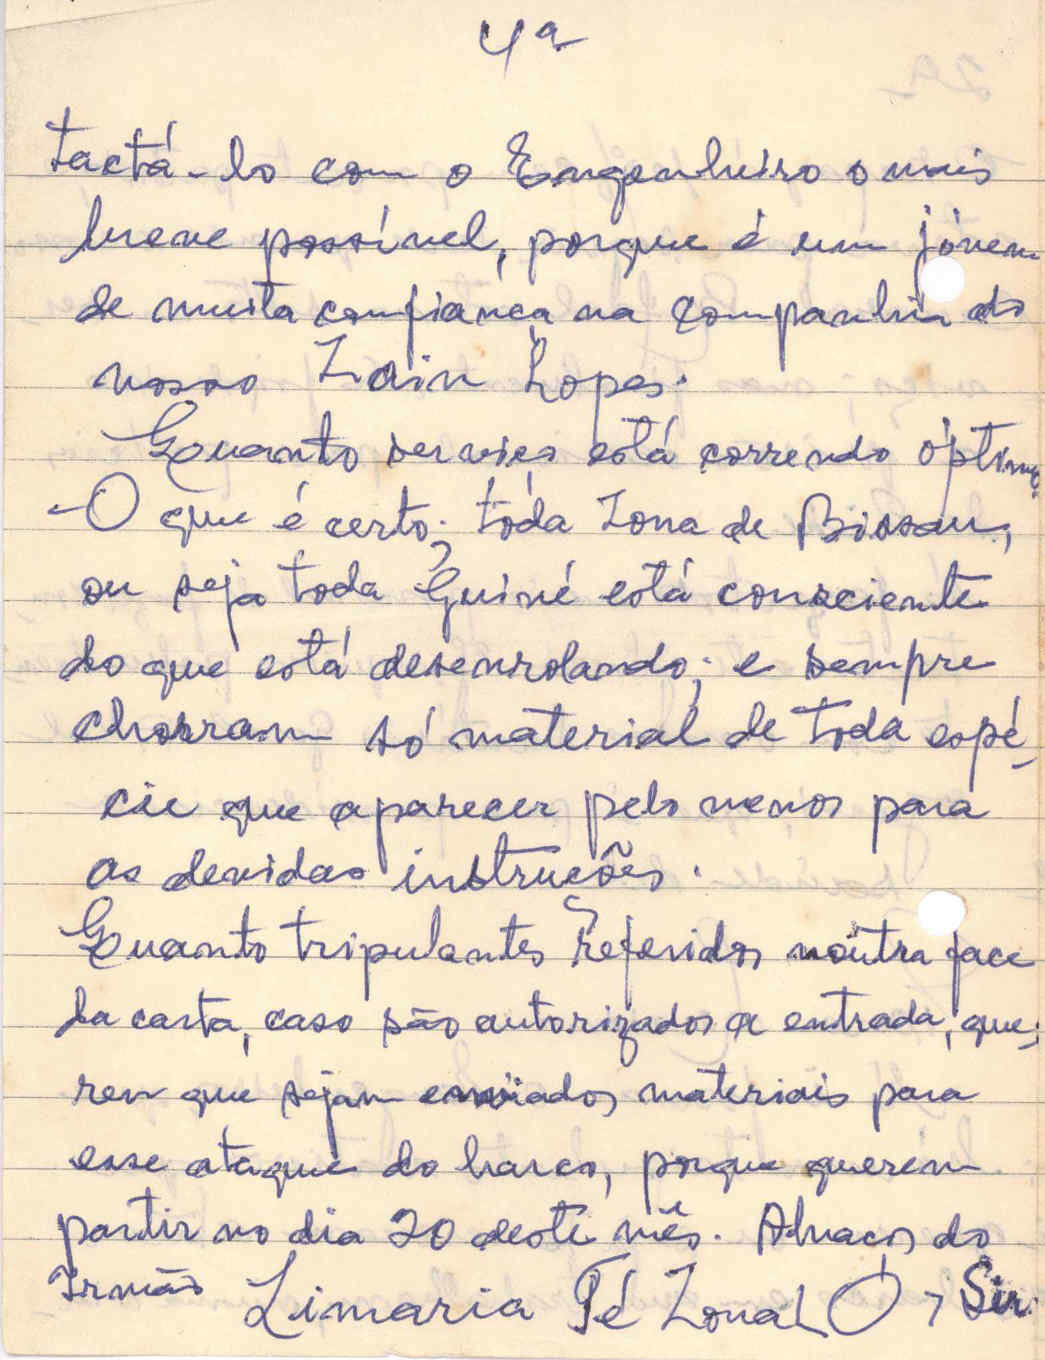 4ª
tactá-lo com o Engenheiro o mais
breve possível, porque é um jóvem
de muita confiança na Companhia do
nosso Zain Lopes.
Quanto serviço está correndo óptimo.
-O que é certo; tóda Zona de Bissau,
ou seja toda Guiné está consciente
do que está desenrolando; e sempre
choram só material de toda espé-
cie que aparecer pelo menos para
as devidas instruções.
Quanto tripulantes referidos noutra face
da carta, caso são autorizados a entrada, que-
ren que sejam enviados materiais para
esse ataque do barco, porque querem
partir no dia 20 deste mês. Abraços do
Irmão Limaria Té Zona